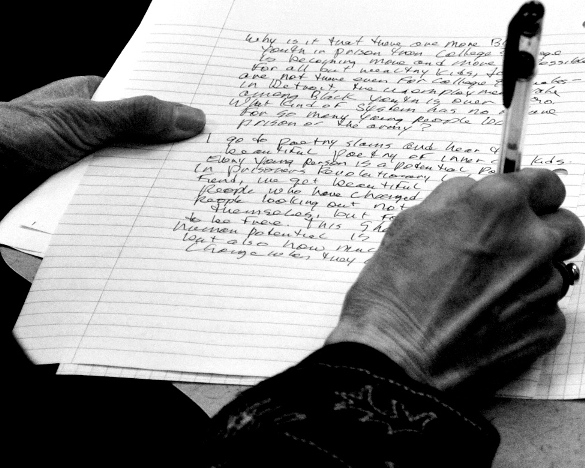 Why is it that there are more B
youth in prison than college
is becoming more and more
For all but wealthy kids, to
are not there even for college
in Detroit the unemployment
among Black youth is over
What kind of system has no
for so many young people
prison or the army?
I go to poetry slams and hear
beautiful poetry of inner kids.
Every young person is a potential
In Prisoners Revolutionary
Fund, we get beautiful
people who have changed
people looking out not
themselves, but
to be free. This
human potential is
but also how
change when they